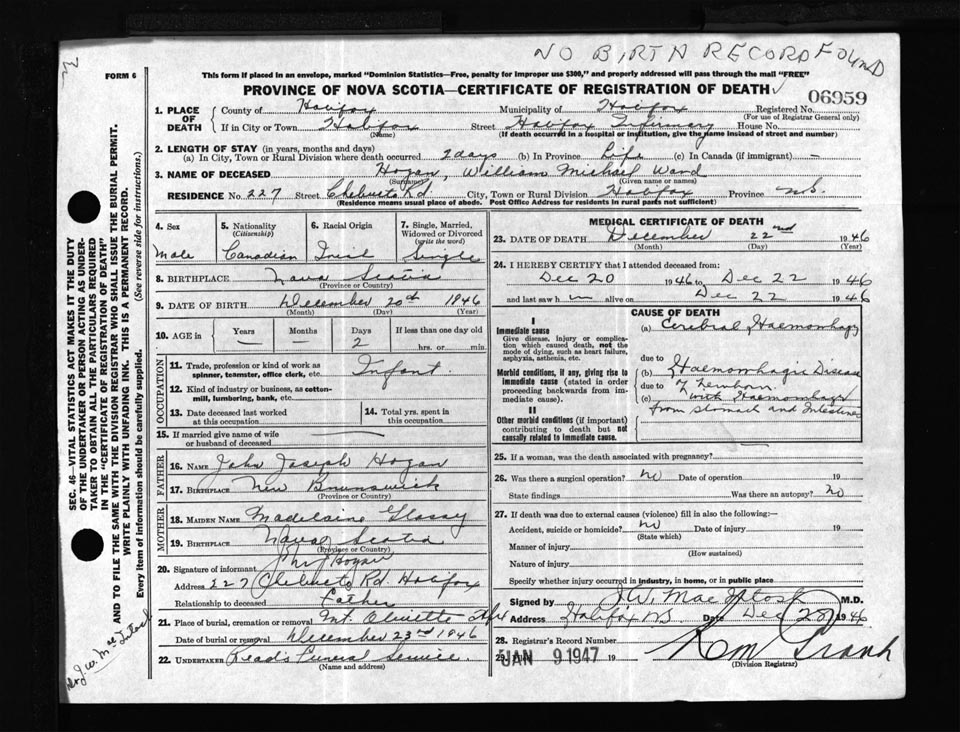 NO BIRTH RECORD FOUND
FORM 6
This form if placed in an envelope, marked "Dominion Statistics—Free, penalty for improper use $300," and properly addressed will pass through the mail "FREE"
PROVINCE OF NOVA SCOTIA—CERTIFICATE OF REGISTRATION OF DEATH
06959
1. PLACE OF DEATH
County of Halifax Municipality of Halifax Registered No.
(For use of Registrar General only)
If in City or Town Halifax Street Halifax Infirmary House No.
(Name) (If death occurred in a hospital or institution, give the name instead of street and number)
2. LENGTH OF STAY (in years, months and days)
(a) In City, Town or Rural Division where death occurred 2 days (b) In Province Life (c) In Canada (if immigrant) —
3. NAME OF DECEASED Hogan, William Michael Ward
(Surname) (Given name or names)
RESIDENCE No. 227 Street Chebucto Rd. City, Town or Rural Division Halifax Province N.S.
(Residence means usual place of abode. Post Office Address for residents in rural parts not sufficient)
4. Sex
Male
5. Nationality
(Citizenship)
Canadian
6. Racial Origin
Irish
7. Single, Married, Widowed or Divorced
(write the word)
Single
8. BIRTHPLACE Nova Scotia
(Province or Country)
9. DATE OF BIRTH December 20th 1946
(Month) (Day) (Year)
10. AGE in
Years Months Days If less than one day old
— — 2 hrs. or min.
OCCUPATION
11. Trade, profession or kind of work as spinner, teamster, office clerk, etc. Infant.
12. Kind of industry or business, as cotton-mill, lumbering, bank, etc.
13. Date deceased last worked at this occupation
14. Total yrs. spent in this occupation
15. If married give name of wife or husband of deceased —
FATHER
16. NAME John Joseph Hogan
17. BIRTHPLACE New Brunswick
(Province or Country)
MOTHER
18. MAIDEN NAME Madelaine
19. BIRTHPLACE Nova Scotia
(Province or Country)
20. Signature of informant Hogan
Address 227 Chebucto Rd. Halifax
Relationship to deceased Father
21. Place of burial, cremation or removal Mt. Olivette
Date of burial or removal December 23rd 1946
22. UNDERTAKER Read's Funeral Service.
(Name and address)
MEDICAL CERTIFICATE OF DEATH
23. DATE OF DEATH December 22nd 1946
(Month) (Day) (Year)
24. I HEREBY CERTIFY that I attended deceased from:
Dec 20 1946 to Dec 22 1946
and last saw h im alive on Dec 22 1946
CAUSE OF DEATH
I
Immediate cause
Give disease, injury or complication which caused death, not the mode of dying, such as heart failure, asphyxia, asthenia, etc.
(a) Cerebral Haemorrhage
due to
Morbid conditions, if any, giving rise to immediate cause (stated in order proceeding backwards from immediate cause).
(b) Haemorrhagic Disease
due to of Newborn
(c) with Haemorrhage
from stomach and Intestine
II
Other morbid conditions (if important) contributing to death but not causally related to immediate cause.
25. If a woman, was the death associated with pregnancy?
26. Was there a surgical operation? no Date of operation 19
State findings Was there an autopsy? no
27. If death was due to external causes (violence) fill in also the following:—
Accident, suicide or homicide? no Date of injury 19
(State which)
Manner of injury
(How sustained)
Nature of injury
Specify whether injury occurred in industry, in home, or in public place
Signed by J.W. MacIntosh M.D.
Address Halifax NS Date Dec 28 1946
28. Registrar's Record Number
29. JAN 9 1947 19
(Division Registrar)
SEC. 46—VITAL STATISTICS ACT MAKES IT THE DUTY OF THE UNDERTAKER OR PERSON ACTING AS UNDERTAKER TO OBTAIN ALL THE PARTICULARS REQUIRED IN THE "CERTIFICATE OF REGISTRATION OF DEATH" AND TO FILE THE SAME WITH THE DIVISION REGISTRAR WHO SHALL ISSUE THE BURIAL PERMIT.
WRITE PLAINLY WITH UNFADING INK. THIS IS A PERMANENT RECORD.
Every item of information should be carefully supplied. (See reverse side for instructions.)